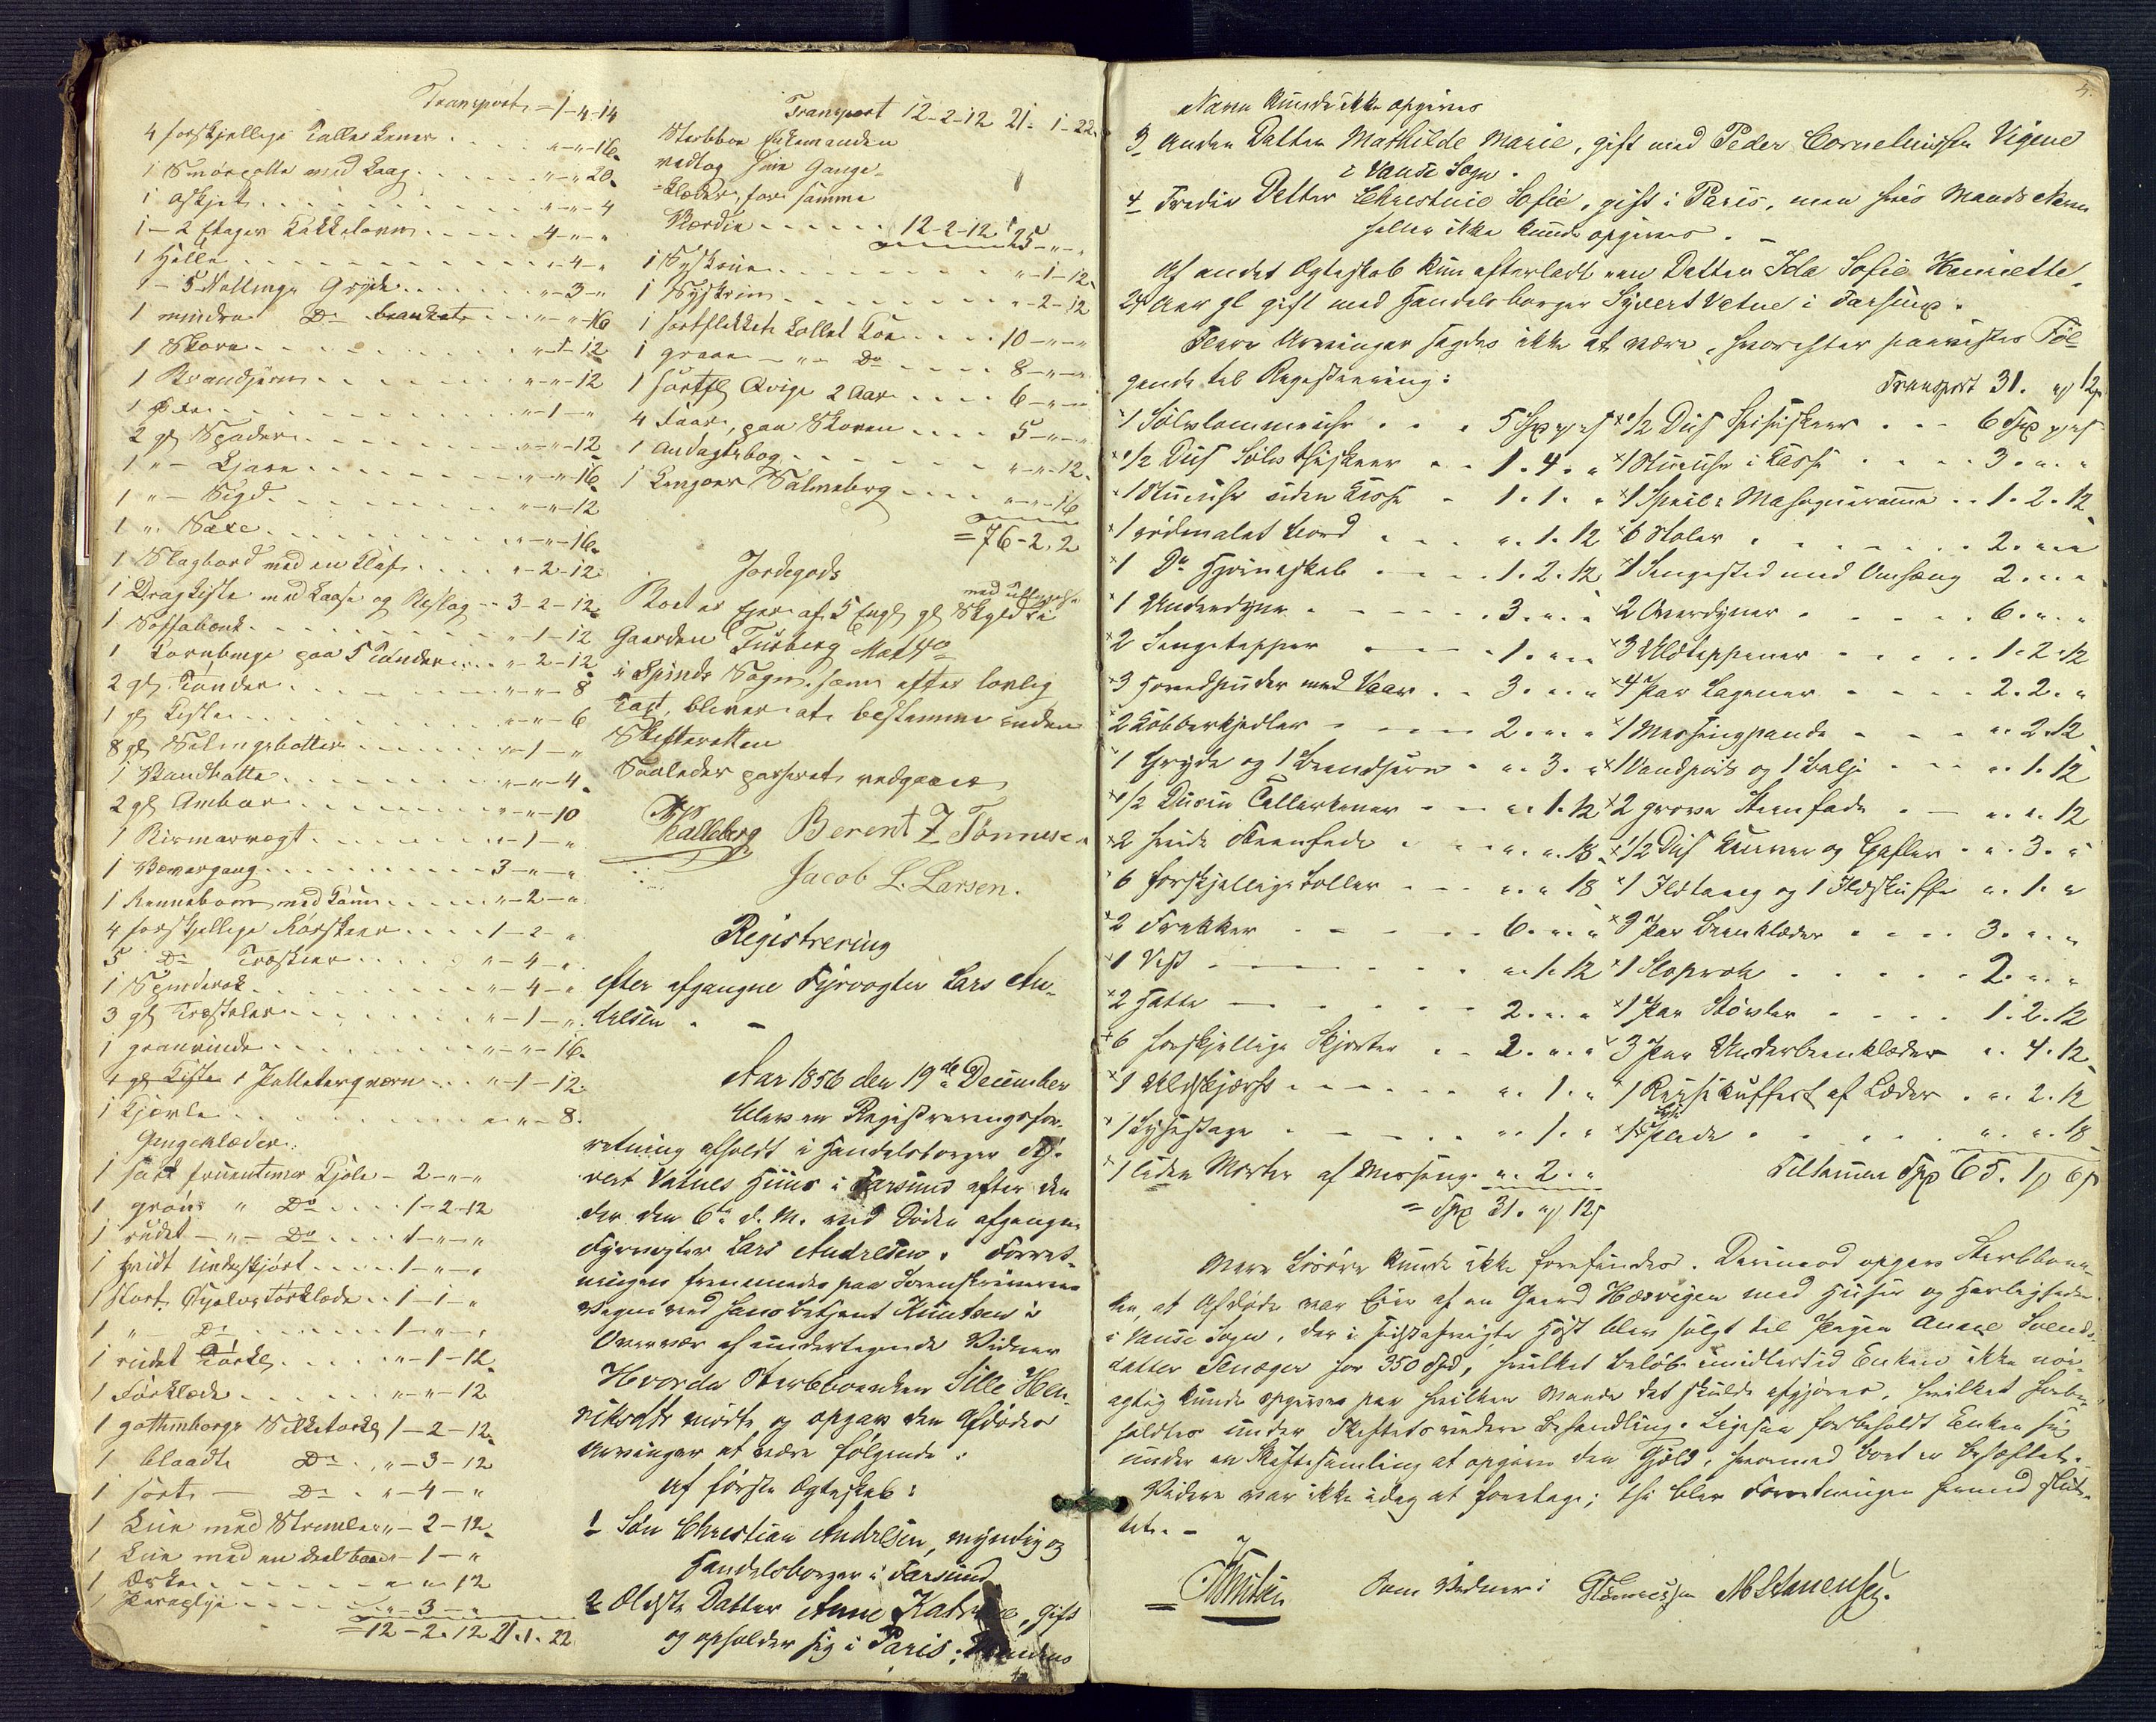 Transport = 1-4-14
4 forskjellige Tallerkener . . "-"-16
1 Smørgolte med Laag . . . . . "-"-20
1 Øskjet . . . . . "-"-4
1 - 2 Etages Kakkelovn . . . . 4-"-"
1 Helle . . . . . "-4-"
1 - 5 Kollings Gryde . . . . "-3-"
1 mindre Do brankets . . . "-"-16
1 Skore . . . . . "-1-12
1 Brandjern . . . . . "-"-12
1 Øxe . . . . . "-1-"
2 gl Spader . . . . . "-"-12
1 "- Ljaae . . . . . "-"-16
1 "- Sigd . . . . . "-"-12
1 " Saxe . . . . . "-"-16
1 Slagbord med en Klaf . . . . "-2-12
1 Dragkiste med Laase og Beslag - - 3-2-12
1 Soffabænk . . . . . "-1-12
1 Kornbinge paa 5 Tønder . . . "-2-12
2 gl Tønder . . . . . "-"-8
1 gl Kiste . . . . . "-"-6
8 gl Melingebøtter . . . . "-1-"
1 Vandbøtte . . . . . "-"-4
2 gl Ambar . . . . . "-"-10
1 Bismervægt . . . . . "-1-"
1 Vævergang . . . . . 3-"-"
1 Rennebom med . . . . "-2-"
4 forskjellige Kørskeer . . . . 1-2-"
5 Do Træskeer . . . . "-4-"
1 Spinderok . . . . . "-4-"
3 gl Træstoler . . . . . "-1-"
1 garnvinde . . . . . "-"-16
1 gl Kiste 1 Pallaterqværn . . . "-1-12
1 Kjævle . . . . . "-"-8
Gangklæder.
1 sort fruentimer Kjole - 2-"-"
1 grøn " Do . . . 1-2-12
1 rudet -"- Do . . . 1-"-"
1 hvidt Underskjørt . . . . 1-"-"
1 stort Kjolestørklæde . . 1-1-"
1 "- Do . . . . 1-"-"
1 rudet Tørkl . . . . "-1-12
1 Forklæde . . . . "-"-12
1 gothenborgs Silketørkl 1-2-12
1 blaadt Do . . "-3-12
1 sort - Do . "-4-"
1 Lue med Strimler "-2-12
1 Lue med en deel baand - 1-"
1 Æske . . . . "-"-12
1 Paraplye . . . . "-3-"
=12-2-12 21.1.22
Transport 12-2-12 21-1-22
Sterbbo Enkemanden
vedtog sine Gang-
=klæder, for samme
Værdie . . . . . 12-2-12 25-"-"
1 Syskrue . . . . . "-1-12
1 Syskrin . . . . . "-2-12
1 sortflekket kollet Koe . . . . 10-"-"
1 graae -"- Do . . . . 8-"-"
1 sortfl Qvige 2 Aar . . . . 6-"-"
4 Faar, paa Skoven . . . . 5-"-"
1 Andagtsbog . . . . . "-"-12
1 Kingoes Salmebog . . . . "-"-16
=76-2.2
Jordegods
med udtagelse
Boet er Eier af 5 Engl gl Skyld i
Gaarden Tuberg Mat No
i Spinds Sogn. som efter lovlig
Taxt, bliver at bestemme inden
Skifteretten
Saaledes passeret vedgaaes
Kalleberg Berent Z Tønnesen
Jacob L. Larsen.
Registrering
efter afgangne Fyrvogter Lars An-
drésen. -
Aar 1856 den 19de December
blev en Registreringsfor-
retning afholdt i Handelsborger Sy-
vert Vatnes Huus i Farsund efter den
der den 6te d. M. ved Døden afgangne
Fyrvogter Lars Andresen. Forret-
ningen fremmedes paa Sorenskriverens
Vegne ved hans betjent Knutsen i
Overvær af undertegnede Vidner
Hvorda Sterbboenken Sille Hen-
riksdtr mødte og opgav den Afdødes
Arvinger at være følgende:
af første Ægteskab:
1 Søn Christian Andresen, myndig og
Handelsborger i Farsund
2 Ældste Datter Anne Katrine, gift
og opholder sig i Paris; Mandens
5.
Navn kunde ikke opgives
3 Anden Datter Mathilde Marie, gift med Peder Corneliussen Vigene
i Vanse Sogn.
4 Tredie Datter Christine Sofie, gift i Paris, men hvis Mands Navn
heller ikke kunde opgives. -
Af andet Ægteskab kun efterladt een Datter Ida Sofie Henriette
24 Aar gl gift med Handelsborger Syvert Vatne i Farsund.
Flere Arvinger sagdes ikke at være, hvorefter paavistes Føl-
gende til Registrering: Transport 31. " 12
1 Sølvlommeuhr . . . 5 Spd " "
1/2 Dus Sølv Theskeer . . 1.4."
1 Stueuhr uden Kasse . 1.1."
1 rødmalet Bord . . . ".1.12
1 Do Hjørneskab . . . 1.2.12
1 Underdyne . . . . 3.".
2 Sengetæpper . . . 1.".
3 Hovedpuder med Vaar . . 3.".
2 Kobberkjedler . . . 2.".
1 Gryde og 1 Brandjern . ".3."
1/2 Dusin Tallerkener . . ".1.12
2 hvide Steenfade . . ".".18
6 forskjellige Boller . . ".".18
2 Frakker . . . . 6.".
1 Vest . . . . ".1.12
2 Hatte . . . . 2.".
6 forskjellige Skjorter . . 2.".
1 Uldskjørt . . . . ".1."
1 Lysestage . . . . ".1."
1 liden Morter af Messing . ".2."
= Spd 31. " 12
1/2 Dus Spiseskeer . . . 6 Spd " "
1 Stueuhr i Kasse . . . . 3.".
1 Speil i Mahogniramme . . 1.2.12
6 Stoler . . . . . 2.".
1 Sengested med Omhæng 2.".
2 Overdyner . . . . 6.".
3 Uldtæppener . . . . 1.2.12
4 Par Lagener . . . . 2.2."
1 Messingpande . . . ".2.12
1 Vandpøs og 1 Balje . . ".1.12
2 grove Steenfade . . ".".12
1/2 Dus Knive og Gafler . ".3."
1 Ildtang og 1 Ildskuffe ".1."
3 Par Beenklæder . . . . 3.".
1 Sloprok . . . . 2.".
1 Par Støvler . . . . 1.2.12
3 Par Underbeenklæder ".4.12
1 Reisekuffert af Læder . ".2.12
1 Plade . . . . ".".18
Tilsammen Spd 65. 1 6
Mere Løsøre kunde ikke forefindes. Derimod opgav Sterbboen-
ken, at Afdøde var Eier af en Gaard Hæsvigen med Huse og Herligheder
i Vanse Sogn, der i sidstafvigte Høst blev solgt til Pigen Anne Svends-
datter Stensgen for 350 Spd, hvilket beløb imidlertid Enken ikke nøi-
agtig kunde opgives paa hvilken Maade det skulde afgjøres, hvilket forbe-
holdtes under Skiftets videre Behandling. Ligesaa forbeholdt Enken sig
under en Skiftesamling at opgive den Gjeld, hvormed boet er behæftet.
Videre var ikke idag at foretage; thi blev Forretningen hermed slut-
tet. -
Knutsen Som Vidner: GTønnessen